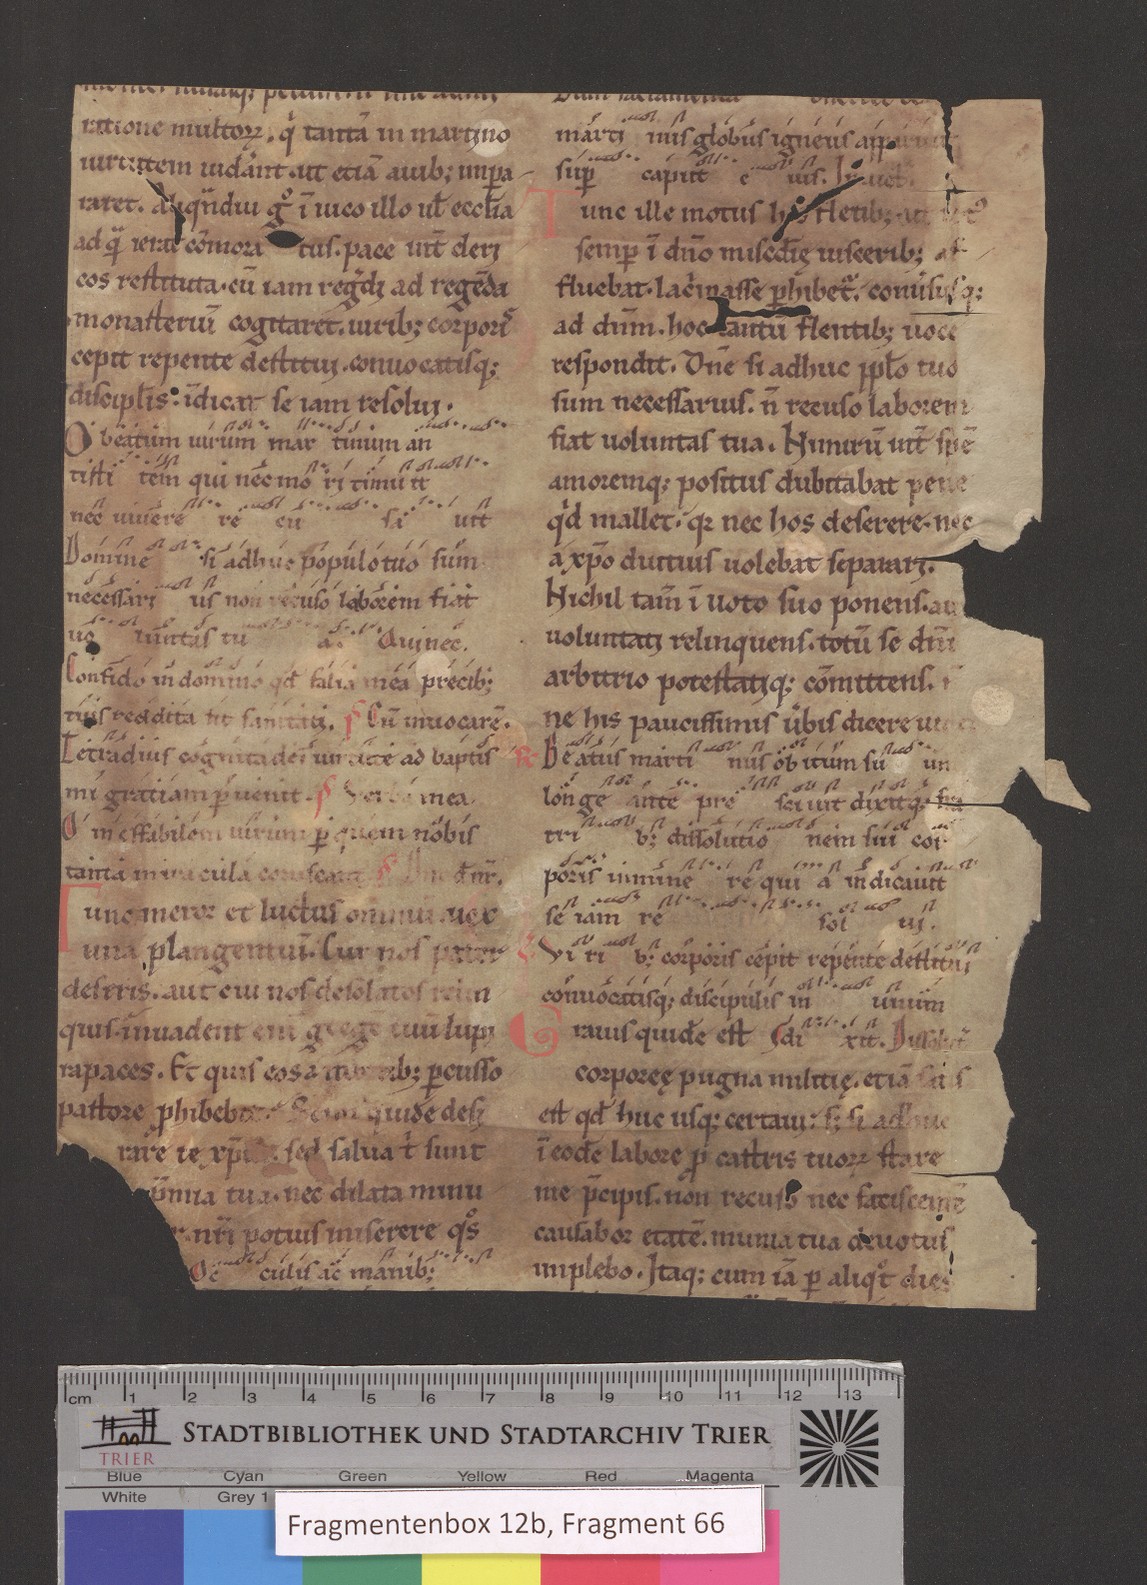 ratione multoꝝ. q̇ tantā in martino
uirtutem uidꝭant. ut etiā auib; impꝑa
raret. Aliqͣndiu gͦ ī uico illo ul̄ ecclīa
ad qͣ̄ ierat cōmoratus. pace int̄ cleri
cos restituta. cū iam regr̄di ad regēda
monasteriū cogitaret. uirib; corporis
cepit repente destitui. conuocatisq;
discipl̄is: īdicat se iam resolui.
O beatum uirum martinum an
tistitem qui nec mori timuit
nec uiuere recusauit
Domine si adhuc populo tuo sum
necessarius non recuso laborem fiat
uoluntas tua. Qui nec.
Confido in domino qd̄ filia mea precib;
tuis reddita sit sanitati. p̄s Cū inuocarē.
Tetradius cognita dei uirtute ad baptis
mi gratiam ꝑuenit. p̄s Verba mea.
O ineffabilem uirum ꝑ quem nobis
tanta miracula coruscant. p̄s Dn̄e dn̄r.
Tunc meror et luctus omnium uox
una plangentiū. Cur nos pater
deseris. aut cui nos desolatos relin
quis. inuadent eni gregē tuū lupi
rapaces. Et quis eos a morsib; ꝑcusso
pastore ꝓhibebit. Scim quidē desi
rare te xp̄m sed salua t̄ sunt
p̄mia tua. nec dilata minu
nr̄i potius miserere qͦs
Oculis ac manib;
martinus globus igneus apparuit
sup̄ caput eius.
Tunc ille motus his fletib; ut
semp̄ ī dn̄o miscd̄ię uiscerib; af
fluebat. lac̄masse ꝓhibet̄. conūsusq;
ad dūm. hoc tantū flentib; uoce
respondit. Dn̄e si adhuc ppl̄o tuo
sum necessarius. n̄ recuso laborem
fiat uoluntas tua. Nimirū int̄ spē
amoremq; positus dubitabat pene
qͥd mallet. qꝛ nec hos deserere. nec
a xp̄o diutius uolebat separari.
Nichil tam̄ ī uoto suo ponens. au
uoluntati relinquens. totū se dn̄i
arbitrio potestatiq; cōmittens.
ne his paucissimis u̇bis dicere ui
R̄ Beatus martinus obitum suum
longe ante presciuit dixitq; fra
trib; dissolutionem sui cor
poris inminere qui a indicauit
se iam resolui.
V̄ Virib; corporis cepit repente destitui
conuocatisq; discipulis in unum
dixit.
Grauis quidē est
corporeę pugna militię. etiā
est qd̄ huc usq; certaui: s; si adhuc
ī eodē labore ꝓ castris tuoꝝ stare
me p̄cipis. non recuso nec fatiscentē
causabor etatē. munia tua deuotus
implebo. Itaq; cum iā ꝑ aliqͦt dies
cm 1 2 3 4 5 6 7 8 9 10 11 12 13
STADTBIBLIOTHEK UND STADTARCHIV TRIER
TRIER
Blue Cyan Green Yellow Red Magenta
White Grey 1
Fragmentenbox 12b, Fragment 66